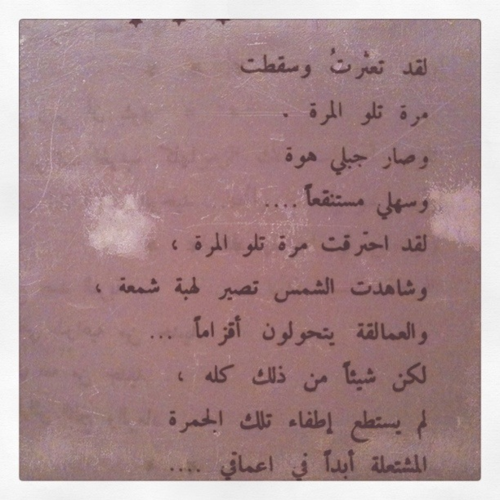 لقد تعثرتُ وسقطت
مرة تلو المرة .
وصار جبلي هوة
وسهلي مستنقعاً ....
لقد احترقت مرة تلو المرة ،
وشاهدت الشمس تصير لهبة شمعة ،
والعمالقة يتحولون أقزاماً ...
لكن شيئاً من ذلك كله ،
لم يستطع إطفاء تلك الجمرة
المشتعلة أبداً في اعماقي ....